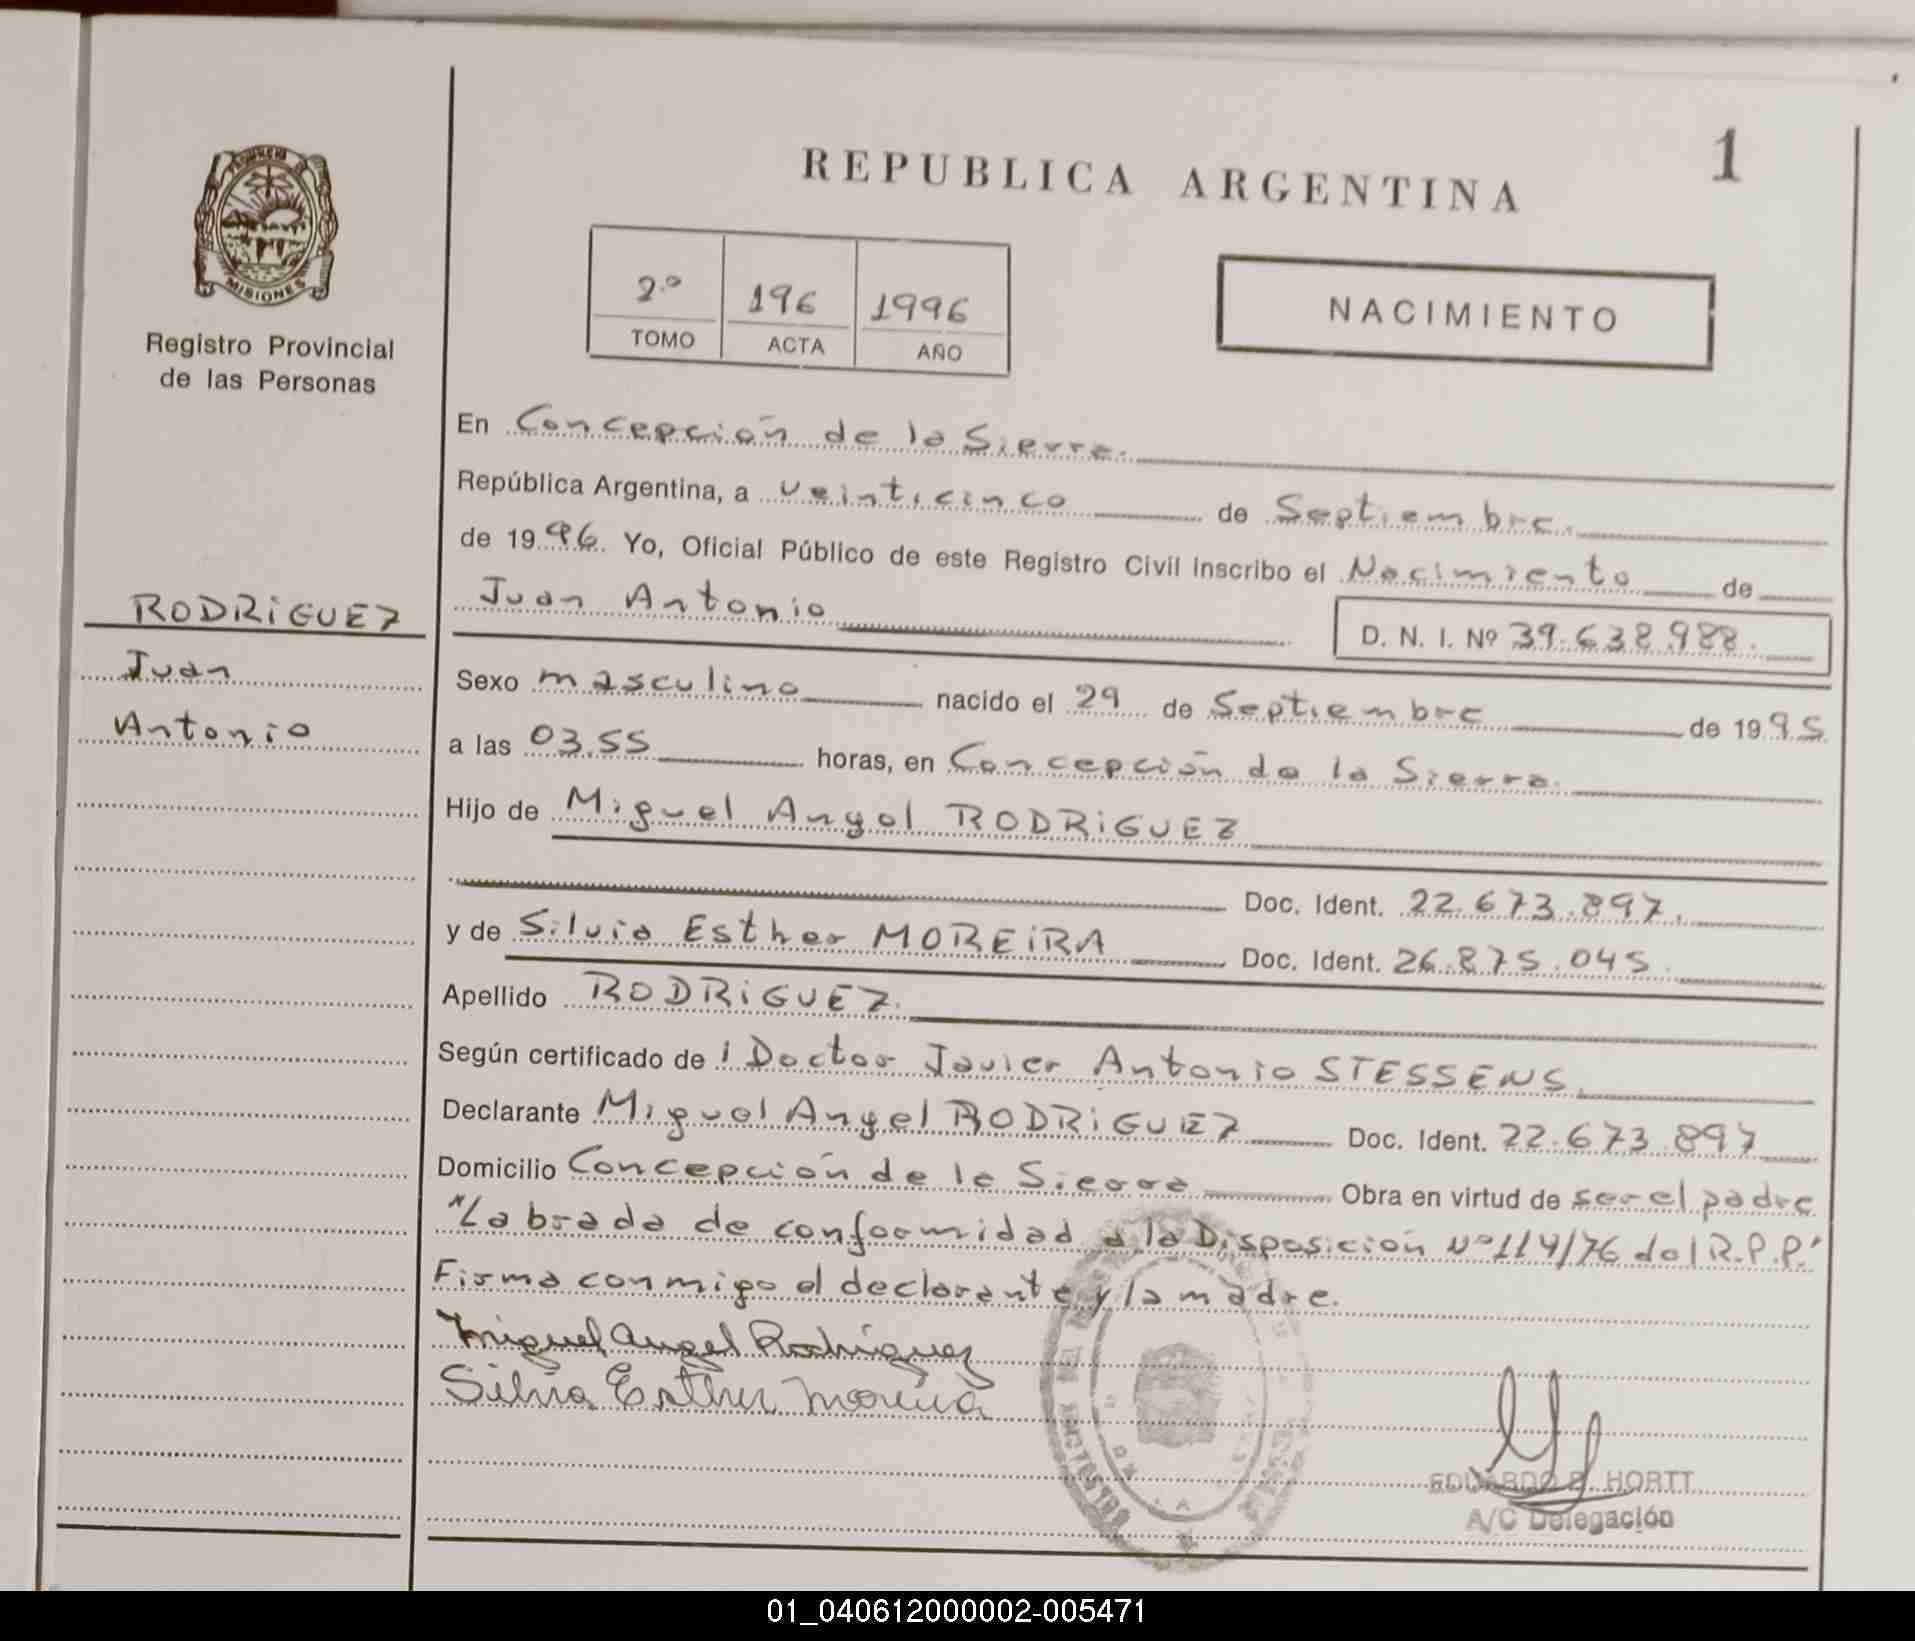 REPUBLICA ARGENTINA
1
MISIONES
Registro Provincial
de las Personas
2º 196 1996
TOMO ACTA AÑO
NACIMIENTO
En Concepción de la Sierra.
República Argentina, a veinticinco de Septiembre.
de 1996. Yo, Oficial Público de este Registro Civil inscribo el Nacimiento de
Juan Antonio
D. N. I. Nº 39.638.988.
RODRiGUEZ
Juan
Antonio
Sexo masculino nacido el 29 de Septiembre de 1995
a las 03.55 horas, en Concepción de la Sierra.
Hijo de Miguel Angel RODRiGUEZ
Doc. Ident. 22.673.897.
y de Silvia Esther MOREiRA Doc. Ident. 26.875.045.
Apellido RODRiGUEZ.
Según certificado de l Doctor Javier Antonio STESSENS.
Declarante Miguel Angel RODRiGUEZ Doc. Ident. 22.673.897
Domicilio Concepción de la Sierra Obra en virtud de ser el padre
"Labrada de conformidad a la Disposición Nº 114/76 del R.P.P."
Firma conmigo el declarante y la madre.
Miguel Angel Rodriguez
Silvia Esther Moreira
EDUARDO R. HORTT
A/C Delegación
01_040612000002-005471